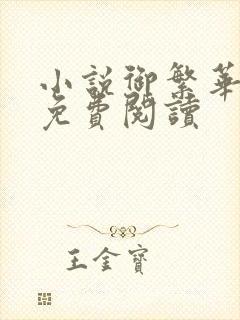 小說御繁華
免費閱讀
王金寶